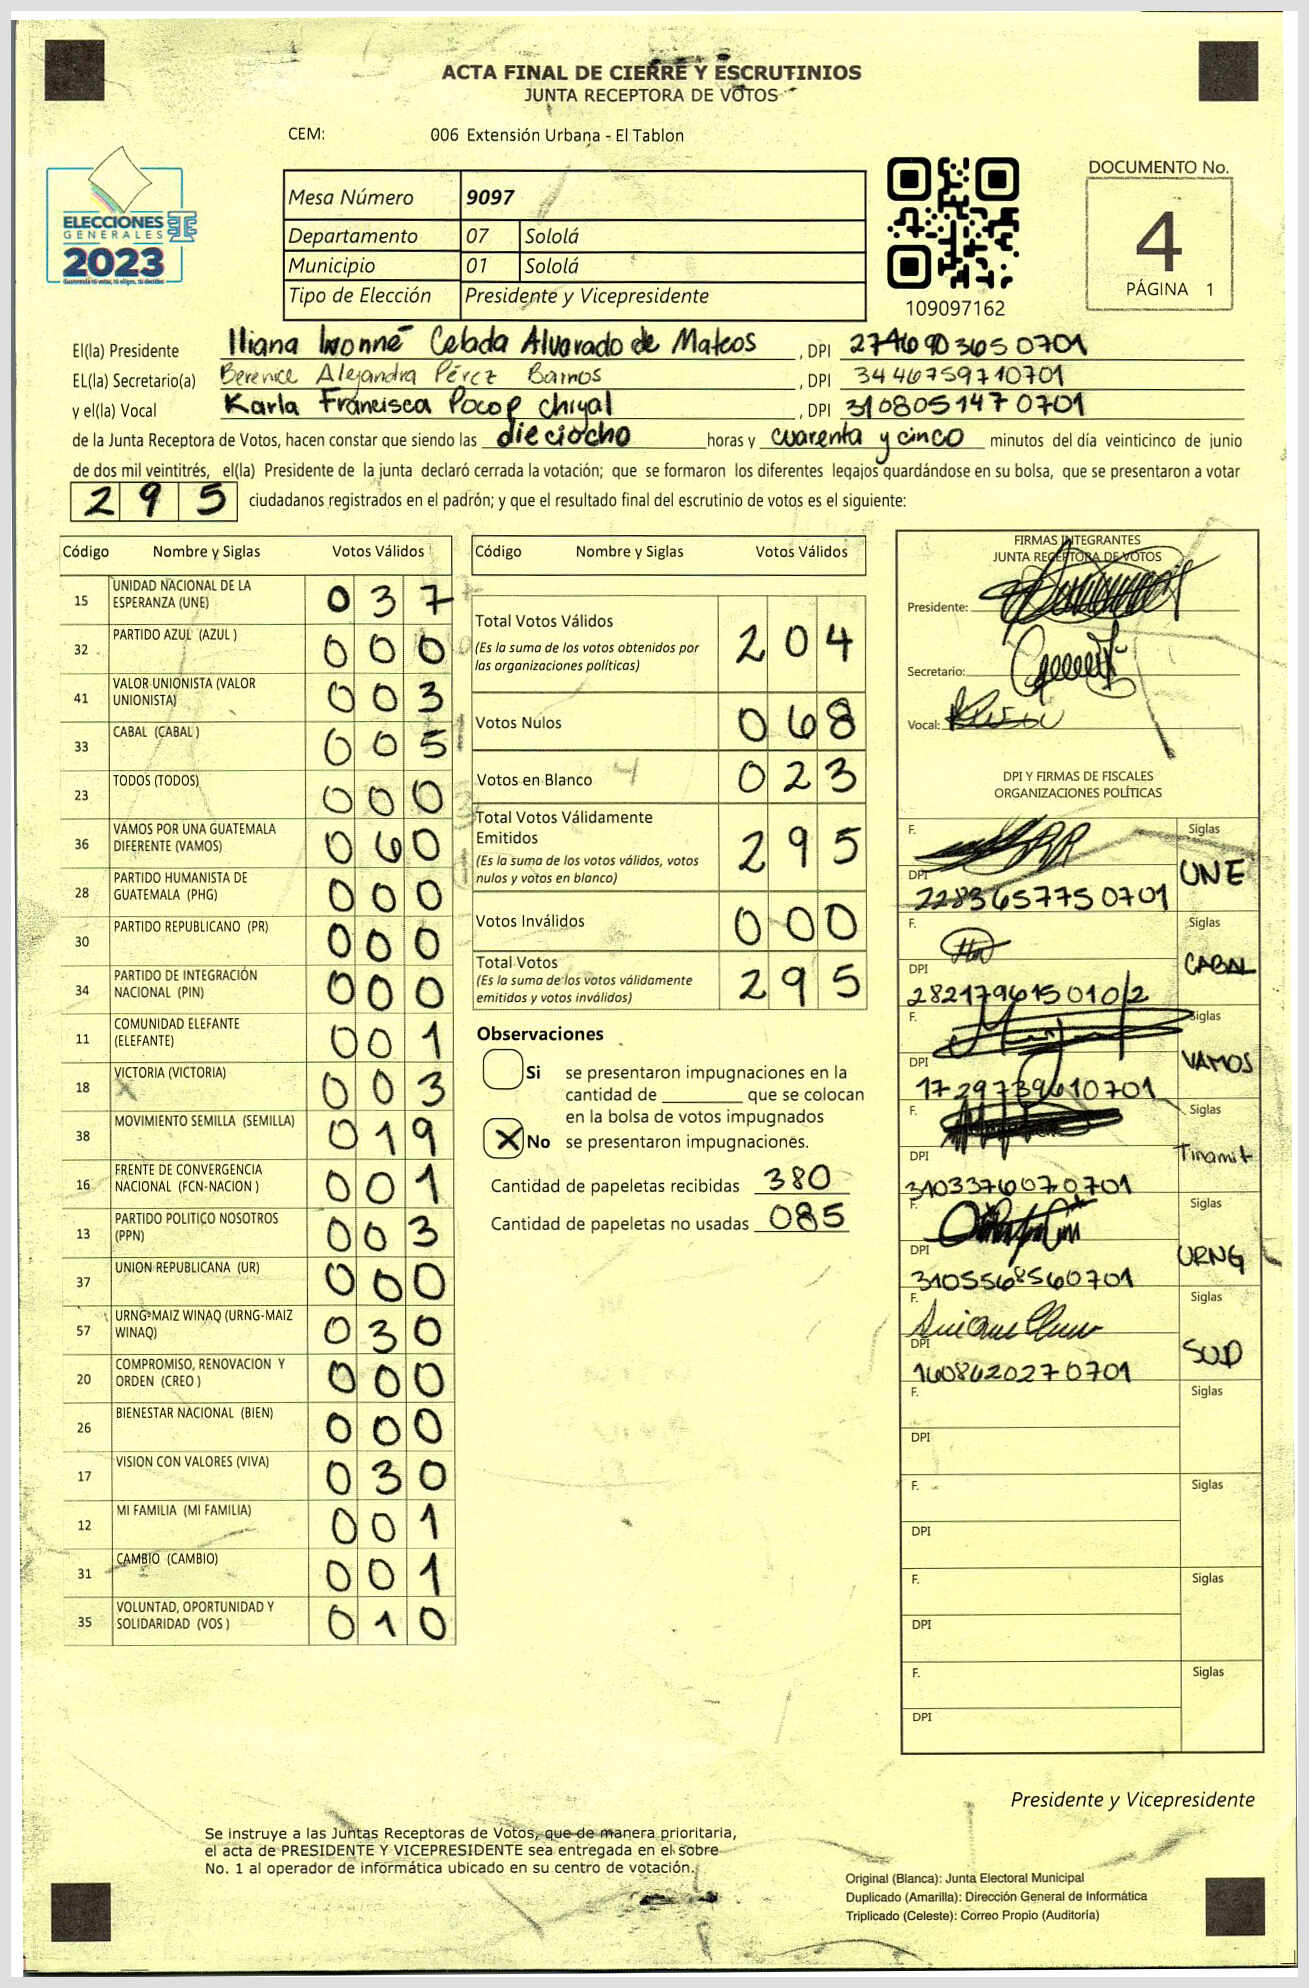 ACTA FINAL DE CIERRE Y ESCRUTINIOS
JUNTA RECEPTORA DE VOTOS
CEM: 006 Extensión Urbana - El Tablon
ELECCIONES
GENERALES
2023
Mesa Número 9097
Departamento 07 Sololá
Municipio 01 Sololá
Tipo de Elección Presidente y Vicepresidente
109097162
DOCUMENTO No.
4
PÁGINA 1
El(la) Presidente Iliana Ivonné Celada Alvarado de Mateos , DPI 2746903650701
EL(la) Secretario(a) Berenice Alejandra Pérez Barrios , DPI 3446759710701
y el(la) Vocal Karla Francisca Pocop Chiyal , DPI 3108051470701
de la Junta Receptora de Votos, hacen constar que siendo las dieciocho horas y cuarenta y cinco minutos del día veinticinco de junio
de dos mil veintitrés, el(la) Presidente de la junta declaró cerrada la votación; que se formaron los diferentes legajos guardándose en su bolsa, que se presentaron a votar
295 ciudadanos registrados en el padrón; y que el resultado final del escrutinio de votos es el siguiente:
Código Nombre y Siglas Votos Válidos
15 UNIDAD NACIONAL DE LA ESPERANZA (UNE) 037
32 PARTIDO AZUL (AZUL ) 000
41 VALOR UNIONISTA (VALOR UNIONISTA) 003
33 CABAL (CABAL ) 005
23 TODOS (TODOS) 000
36 VAMOS POR UNA GUATEMALA DIFERENTE (VAMOS) 060
28 PARTIDO HUMANISTA DE GUATEMALA (PHG) 000
30 PARTIDO REPUBLICANO (PR) 000
34 PARTIDO DE INTEGRACIÓN NACIONAL (PIN) 000
11 COMUNIDAD ELEFANTE (ELEFANTE) 001
18 VICTORIA (VICTORIA) 003
38 MOVIMIENTO SEMILLA (SEMILLA) 019
16 FRENTE DE CONVERGENCIA NACIONAL (FCN-NACION ) 001
13 PARTIDO POLITICO NOSOTROS (PPN) 003
37 UNION REPUBLICANA (UR) 000
57 URNG-MAIZ WINAQ (URNG-MAIZ WINAQ) 030
20 COMPROMISO, RENOVACION Y ORDEN (CREO ) 000
26 BIENESTAR NACIONAL (BIEN) 000
17 VISION CON VALORES (VIVA) 030
12 MI FAMILIA (MI FAMILIA) 001
31 CAMBIO (CAMBIO) 001
35 VOLUNTAD, OPORTUNIDAD Y SOLIDARIDAD (VOS ) 010
Código Nombre y Siglas Votos Válidos
Total Votos Válidos 204
(Es la suma de los votos obtenidos por
las organizaciones políticas)
Votos Nulos 068
Votos en Blanco 023
Total Votos Válidamente
Emitidos 295
(Es la suma de los votos válidos, votos
nulos y votos en blanco)
Votos Inválidos 000
Total Votos 295
(Es la suma de los votos válidamente
emitidos y votos inválidos)
Observaciones
Si se presentaron impugnaciones en la
cantidad de ________ que se colocan
en la bolsa de votos impugnados
X No se presentaron impugnaciones.
Cantidad de papeletas recibidas 380
Cantidad de papeletas no usadas 085
FIRMAS INTEGRANTES
JUNTA RECEPTORA DE VOTOS
Presidente:
Secretario:
Vocal:
DPI Y FIRMAS DE FISCALES
ORGANIZACIONES POLÍTICAS
F. Siglas
DPI 2283657750701 UNE
F. Siglas
DPI 2821796150102 CABAL
F. Siglas
DPI 1729739610701 VAMOS
F. Siglas
DPI 3103376070701 Tinamit
F. Siglas
DPI 3105568560701 URNG
F. Siglas
DPI 1608620270701 SUD
F. Siglas
DPI
F. Siglas
DPI
F. Siglas
DPI
F. Siglas
DPI
Presidente y Vicepresidente
Se instruye a las Juntas Receptoras de Votos, que de manera prioritaria,
el acta de PRESIDENTE Y VICEPRESIDENTE sea entregada en el sobre
No. 1 al operador de informática ubicado en su centro de votación.
Original (Blanca): Junta Electoral Municipal
Duplicado (Amarilla): Dirección General de Informática
Triplicado (Celeste): Correo Propio (Auditoría)